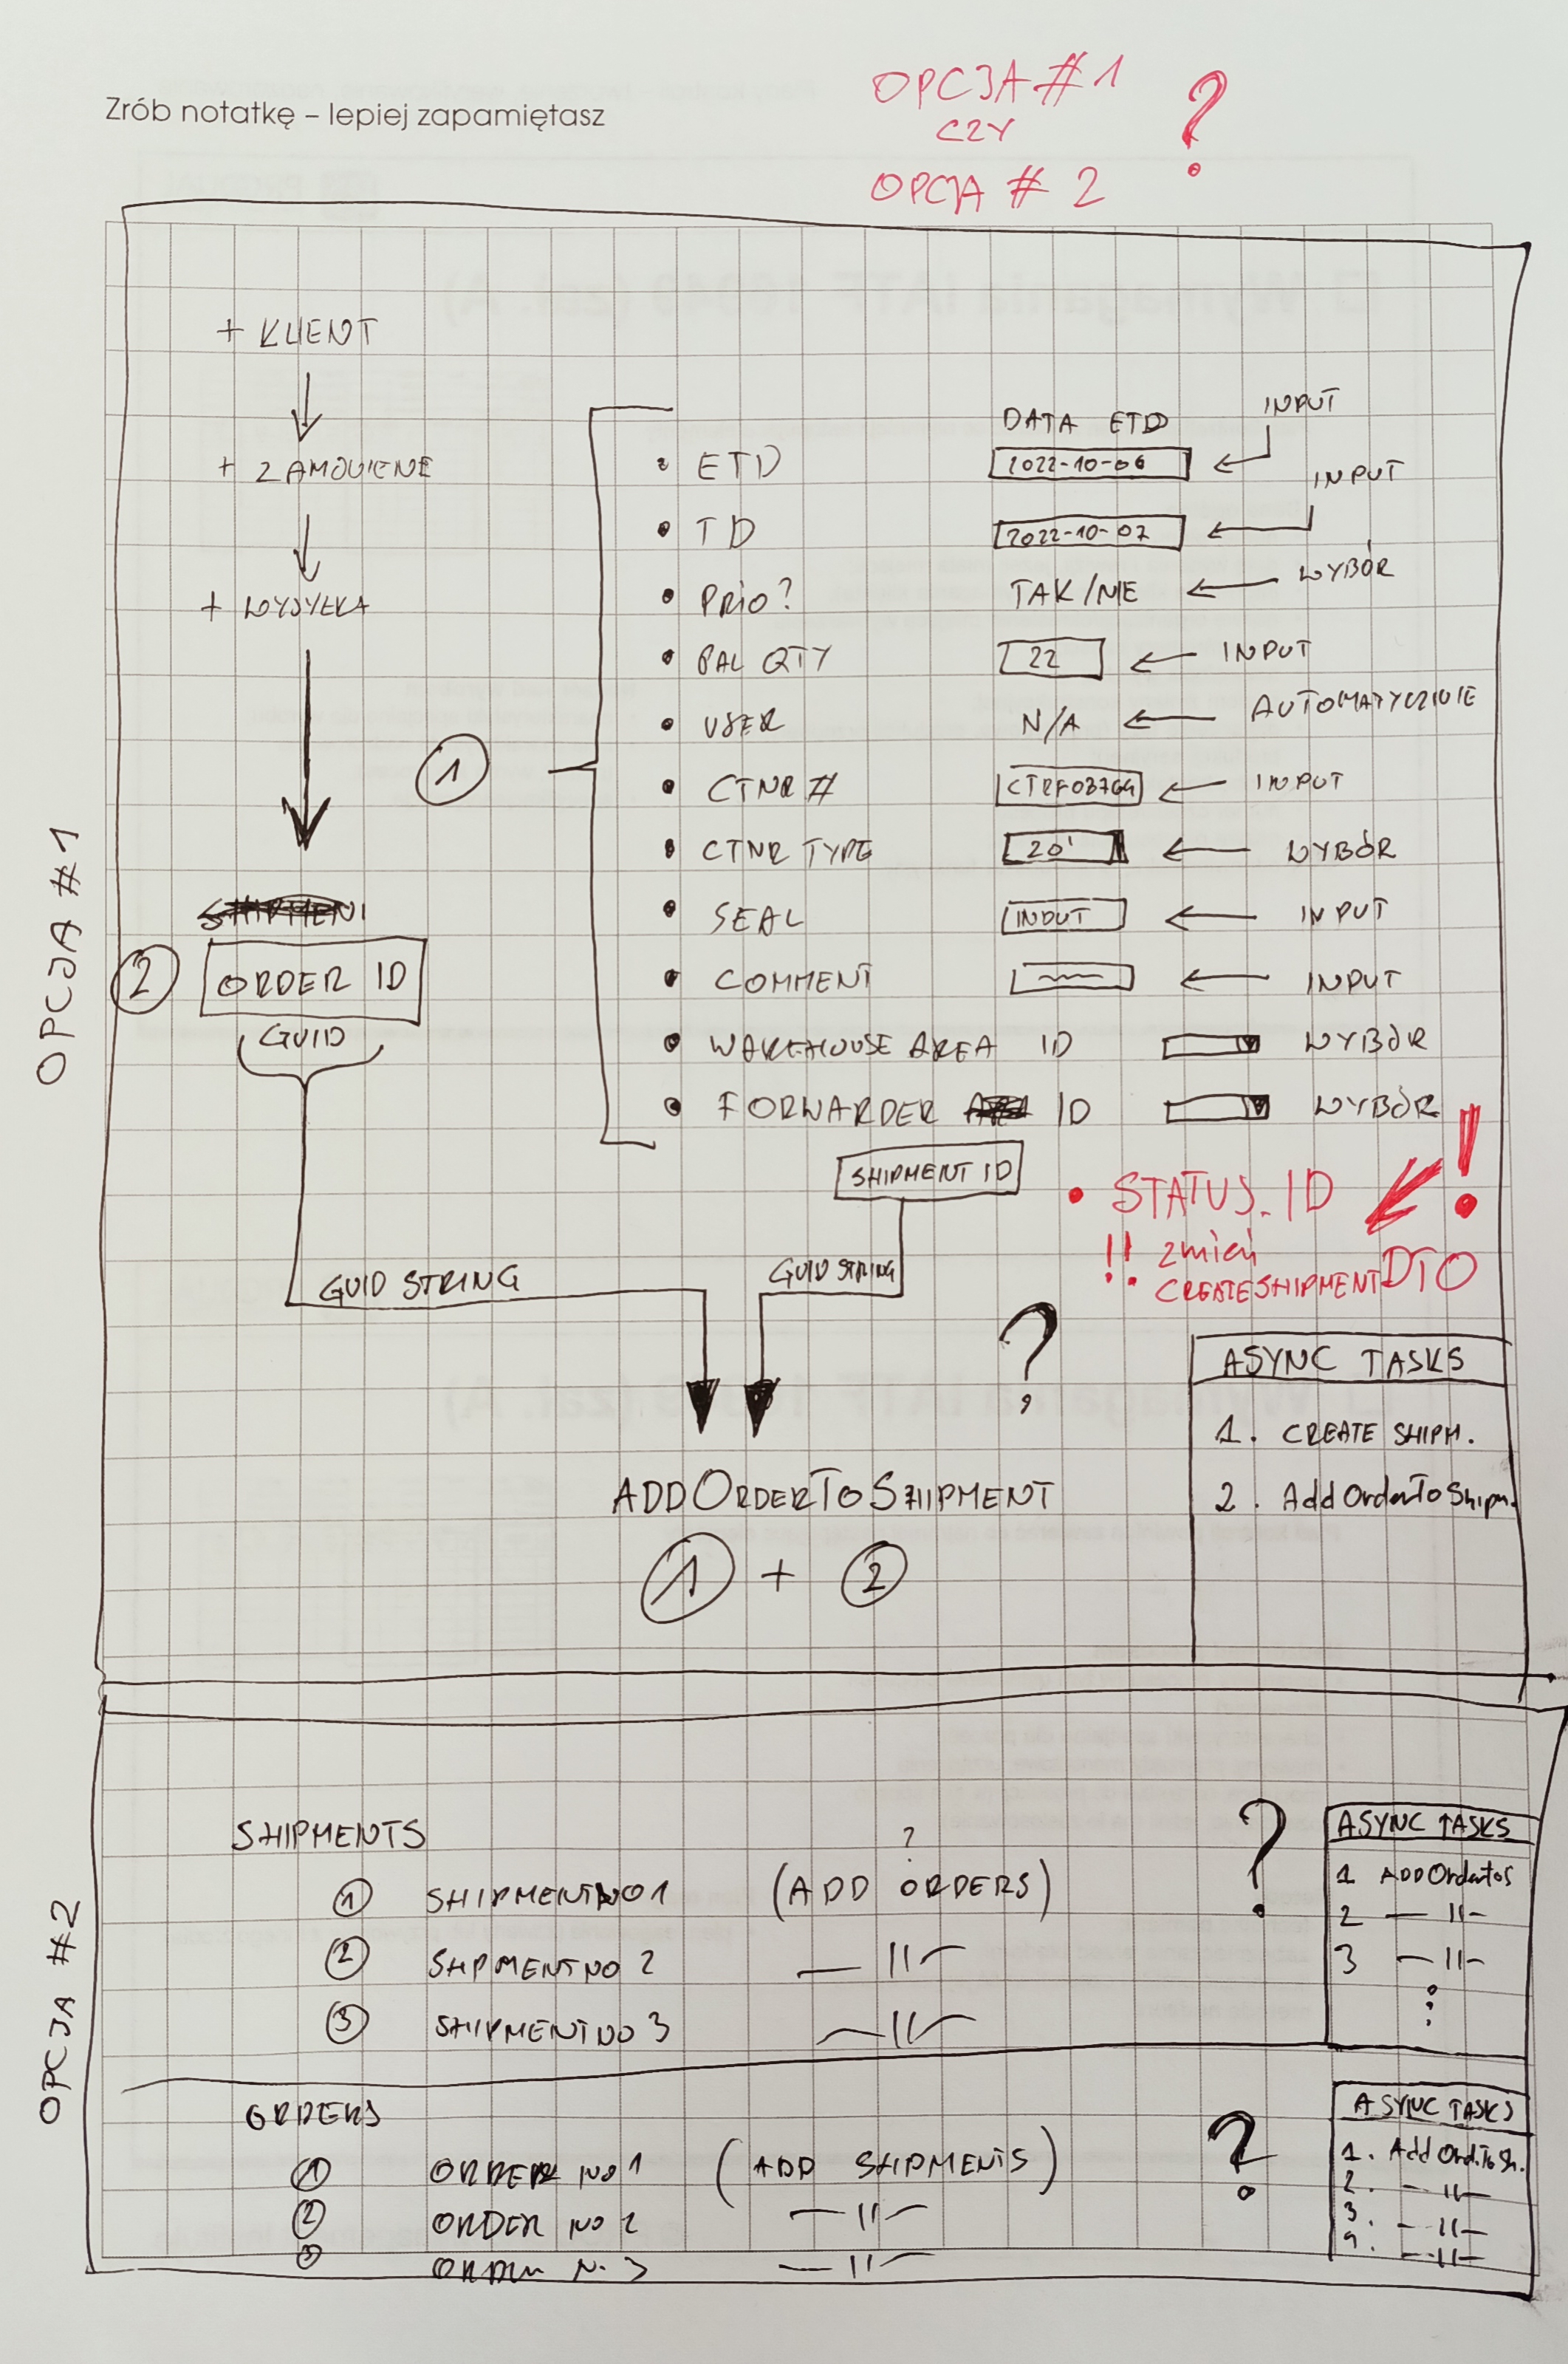 Zrób notatkę – lepiej zapamiętasz
OPCJA #1
CZY
OPCJA # 2
?
OPCJA #1
+ KLIENT
+ ZAMOWIENIE
+ WYSYŁKA
②
ORDER ID
GUID
GUID STRING
①
DATA ETD
• ETD 2022-10-06 ← INPUT
• TD 2022-10-07 ← INPUT
• PRIO? TAK/NIE ← WYBÓR
• PAL QTY 22 ← INPUT
• USER N/A ← AUTOMATYCZNIE
• CTNR # ← INPUT
• CTNR TYPE 20' ← WYBÓR
• SEAL INPUT ← INPUT
• COMMENT ← INPUT
• WAREHOUSE AREA ID WYBÓR
• FORWARDER ID WYBÓR
SHIPMENT ID
GUID STRING
• STATUS_ID
!! zmień
CREATESHIPMENTDTO
!
?
ADDORDERTOSHIPMENT
① + ②
ASYNC TASKS
1. CREATE SHIPM.
2. AddOrderToShipm.
OPCJA #2
SHIPMENTS
?
① SHIPMENT NO 1 (ADD ORDERS)
② SHPMENT NO 2 — 11 —
③ SHIPMENT NO 3 — 11 —
?
ASYNC TASKS
1 ADDOrdertoS
2 — 11 —
3 — 11 —
ORDERS
① ORDER NO 1 (ADD SHIPMENTS)
② ORDER NO 2 — 11 —
③ ORDER N. 3 — 11 —
?
ASYNC TASKS
1. Add Ord.To Sh.
2. — 11 —
3. — 11 —
4. — 11 —